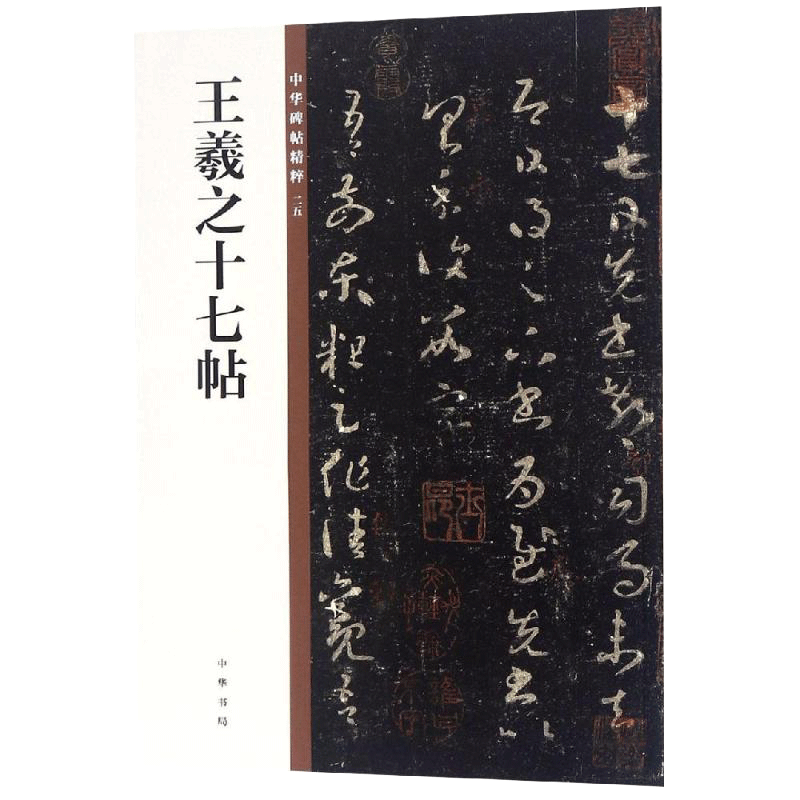 王羲之十七帖
中华书局
中华碑帖精粹 二五
十七日先書郗司馬未去
即日得足下書為慰先書以
具示復數字
吾前東粗足作佳觀吾